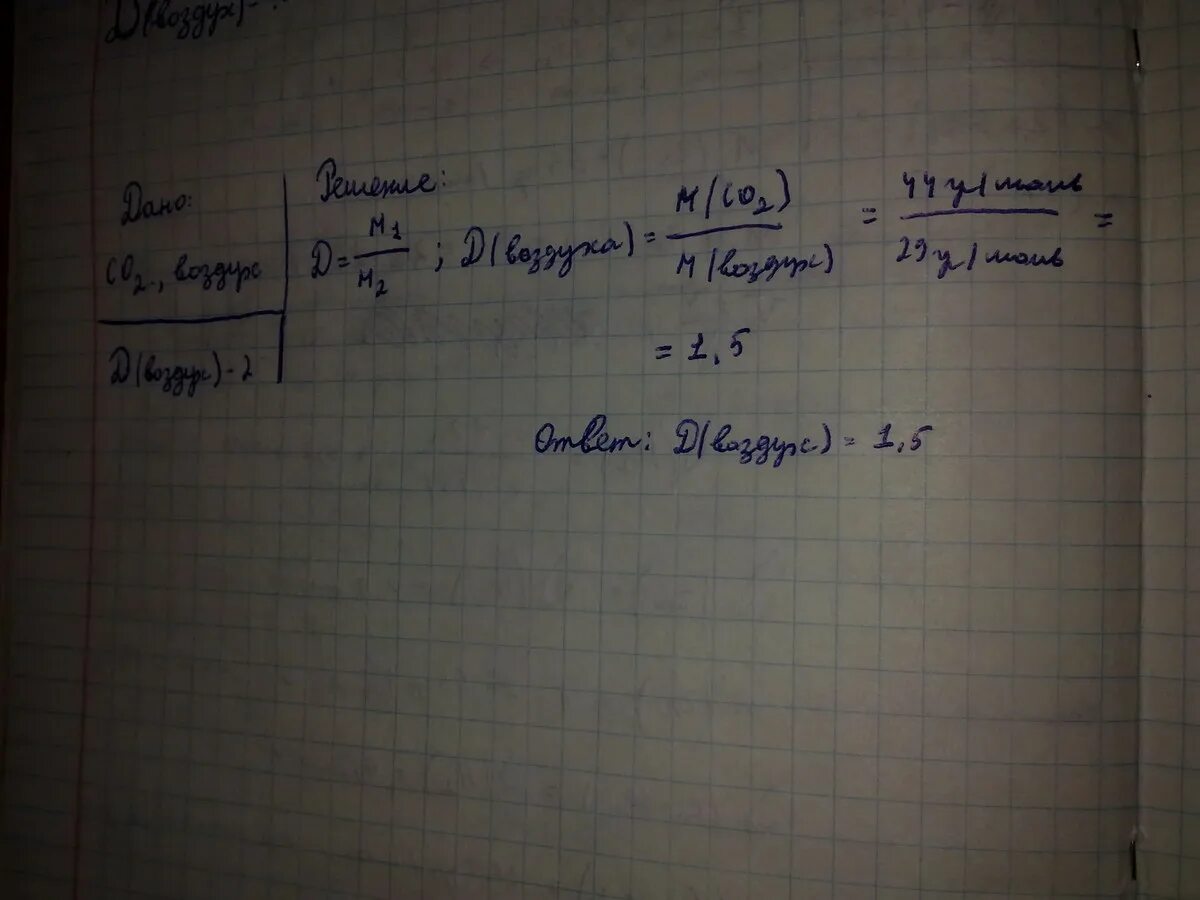 D(воздух)-?
Дано:
CO₂, воздух
D(воздух)-?
Решение:
D = M₁/M₂ ; D(воздуха) = M(CO₂)/M(воздух) = 44 г/моль/29 г/моль =
= 1,5
Ответ: D(воздух) = 1,5